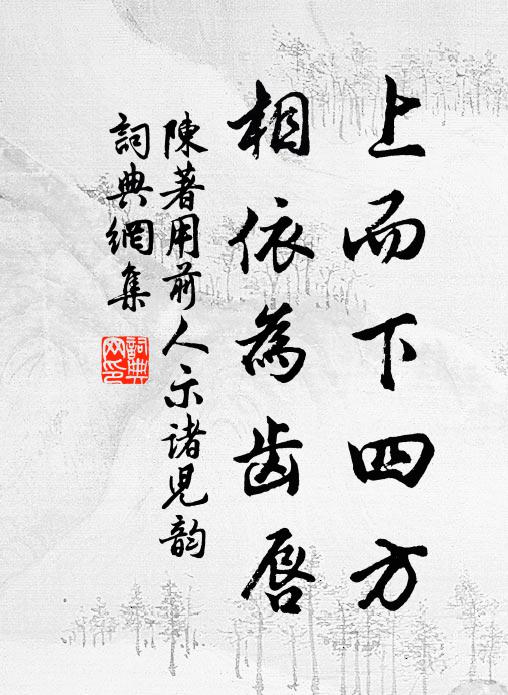 上而下四方
相依為齿唇
陳著用前人示諸児韵
詞典網集
詞典網印